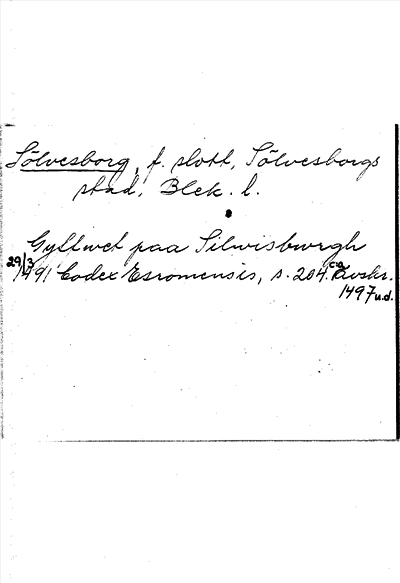 Sölvesborg, f. slott, Sölvesborgs
stad, Blek. l.
Gyffwet paa Silwisburgh
29/3 1491 Codex Esromensis, s. 204. ca Avskr.
1497 u.d.